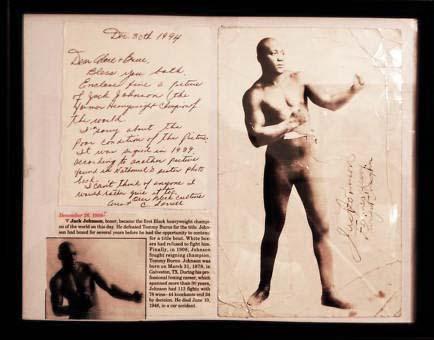 Dec. 30th 1994
Bless you both.
Enclose find a picture
of Jack Johnson (the
former Heavyweight Champion of
the world.
I'm sorry about the
Poor condition of the Picture.
It was signed in 1909.
according to another picture
found in Nathaniel's sister photo
book.
I can't think of anyone I
would rather give it to,
December 26, 1908:
Jack Johnson, boxer, became the first Black heavyweight champi-
on of the world on this day. He defeated Tommy Burns for the title. John-
son had boxed for several years before he had the opportunity to contend
for a title bout. White box-
ers had refused to fight him.
Finally, in 1908, Johnson
fought reigning champion,
Tommy Burns. Johnson was
born on March 31, 1878, in
Galveston, TX. During his pro-
fessional boxing career, which
spanned more than 30 years,
Johnson had 113 fights with
79 wins-44 knockouts and
by decision. He died June 10,
1946, in a car accident.
Jack Johnson